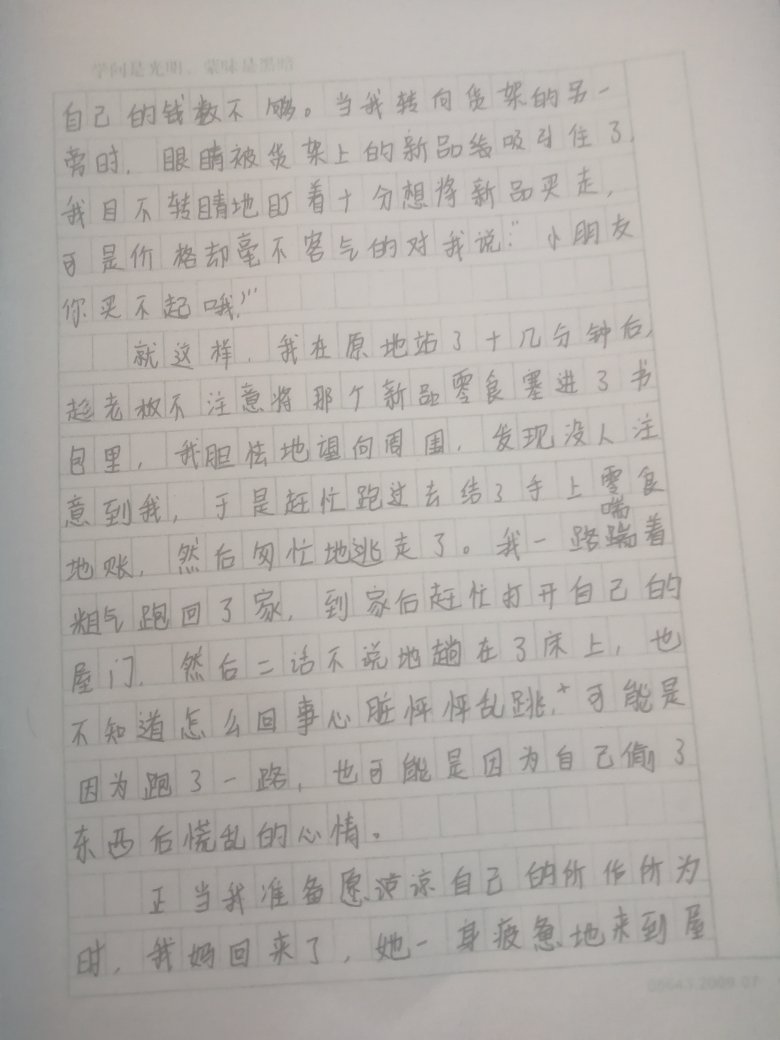 学问是光明，蒙昧是黑暗
自己的钱数不够。当我转向货架的另一
旁时，眼睛被货架上的新品给吸引住了，
我目不转睛地盯着十分想将新品买走，
可是价格却毫不客气的对我说：“小朋友
你买不起哦！”
就这样，我在原地站了十几分钟后，
趁老板不注意将那个新品零食塞进了书
包里，我胆怯地望向周围，发现没人注
意到我，于是赶忙跑过去结了手上零食
喘
地账，然后匆忙地逃走了。我一路踹着
粗气跑回了家，到家后赶忙打开自己的
屋门，然后二话不说地趟在了床上，也
不知道怎么回事心脏怦怦乱跳，可能是
因为跑了一路，也可能是因为自己偷了
东西后慌乱的心情。
正当我准备愿谅自己的所作所为
时，我妈回来了，她一身疲惫地来到屋